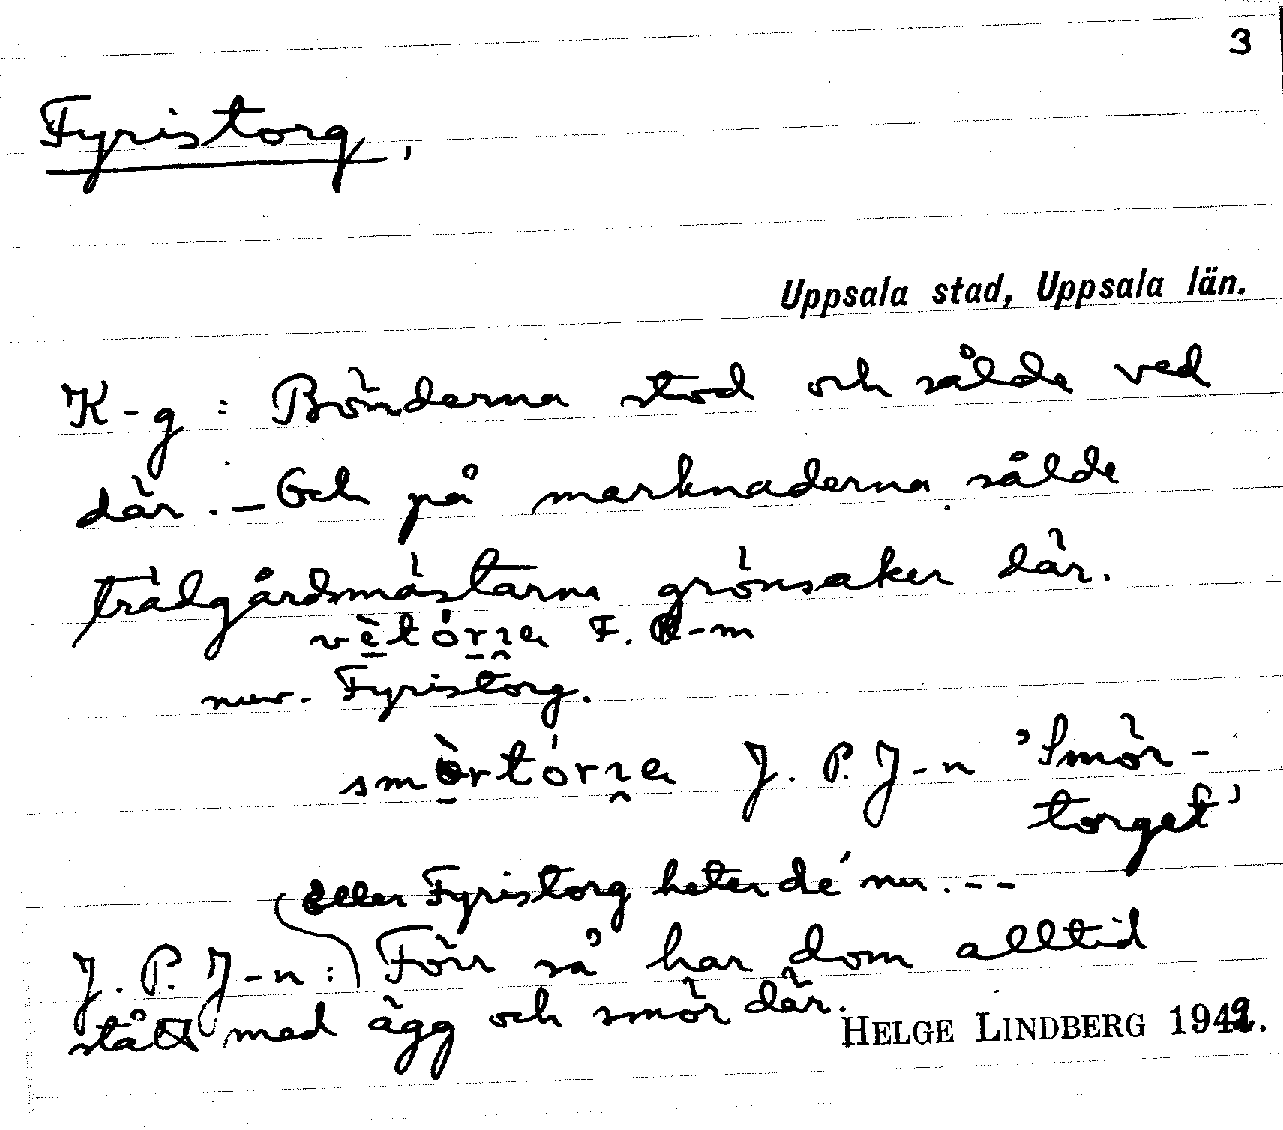 3
Fyristorg,
Uppsala stad, Uppsala län.
K-g: Bönderna stod och sålde ved
där. – Och på marknaderna sålde
trädgårdsmästarna grönsaker där.
F. R-m
nuv. Fyristorg.
J. P. J-n 'Smör-
torget'
eller Fyristorg heter dé nu. --
J. P. J-n: Förr så har dom alltid
stått med ägg och smör där.
HELGE LINDBERG 1942.